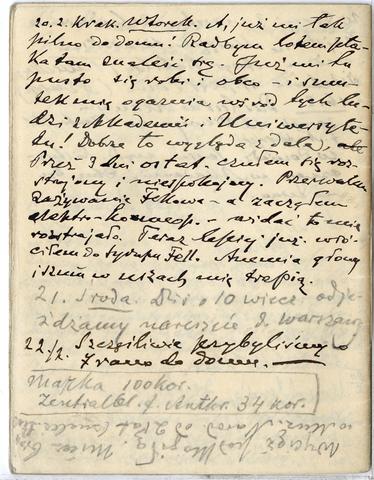 20.2. Krak. Wtorek. A, już mi tak
pilno do domu! Radbym lotem pta-
ka tam znaleść się. Już mi tu
pusto się robi i obco – i smu-
tek mię ogarnia wśród tych lu-
dzi z Akademii i Uniwersyte-
tu! Dobrze to wygląda z dala, ale
Przez 3 dni ostat. czułem się roz-
strojony i niespokojny. Przerwałem
zażywanie Fellowa – a zacząłem
elektro-homeop. – widać to mię
rozstrajało. Teraz lepiej już. wró-
ciłem do syropu Fell. Anemia głowy
i szum w uszach mię trapią.
21. Środa. Dziś o 10 wiecz. odje-
żdżamy nareszcie d. Warszawy
22/2. Szczęśliwie przybyliśmy o
7 rano do domu.
Majka 100 kor.
Zentralbl. f. Anthr. 34 kor.